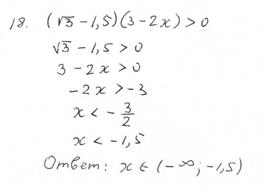 18. (√3 - 1,5)(3 - 2x) > 0
√3 - 1,5 > 0
3 - 2x > 0
-2x > -3
x < - 3/2
x < -1,5
Ответ: x ∈ (-∞; -1,5)